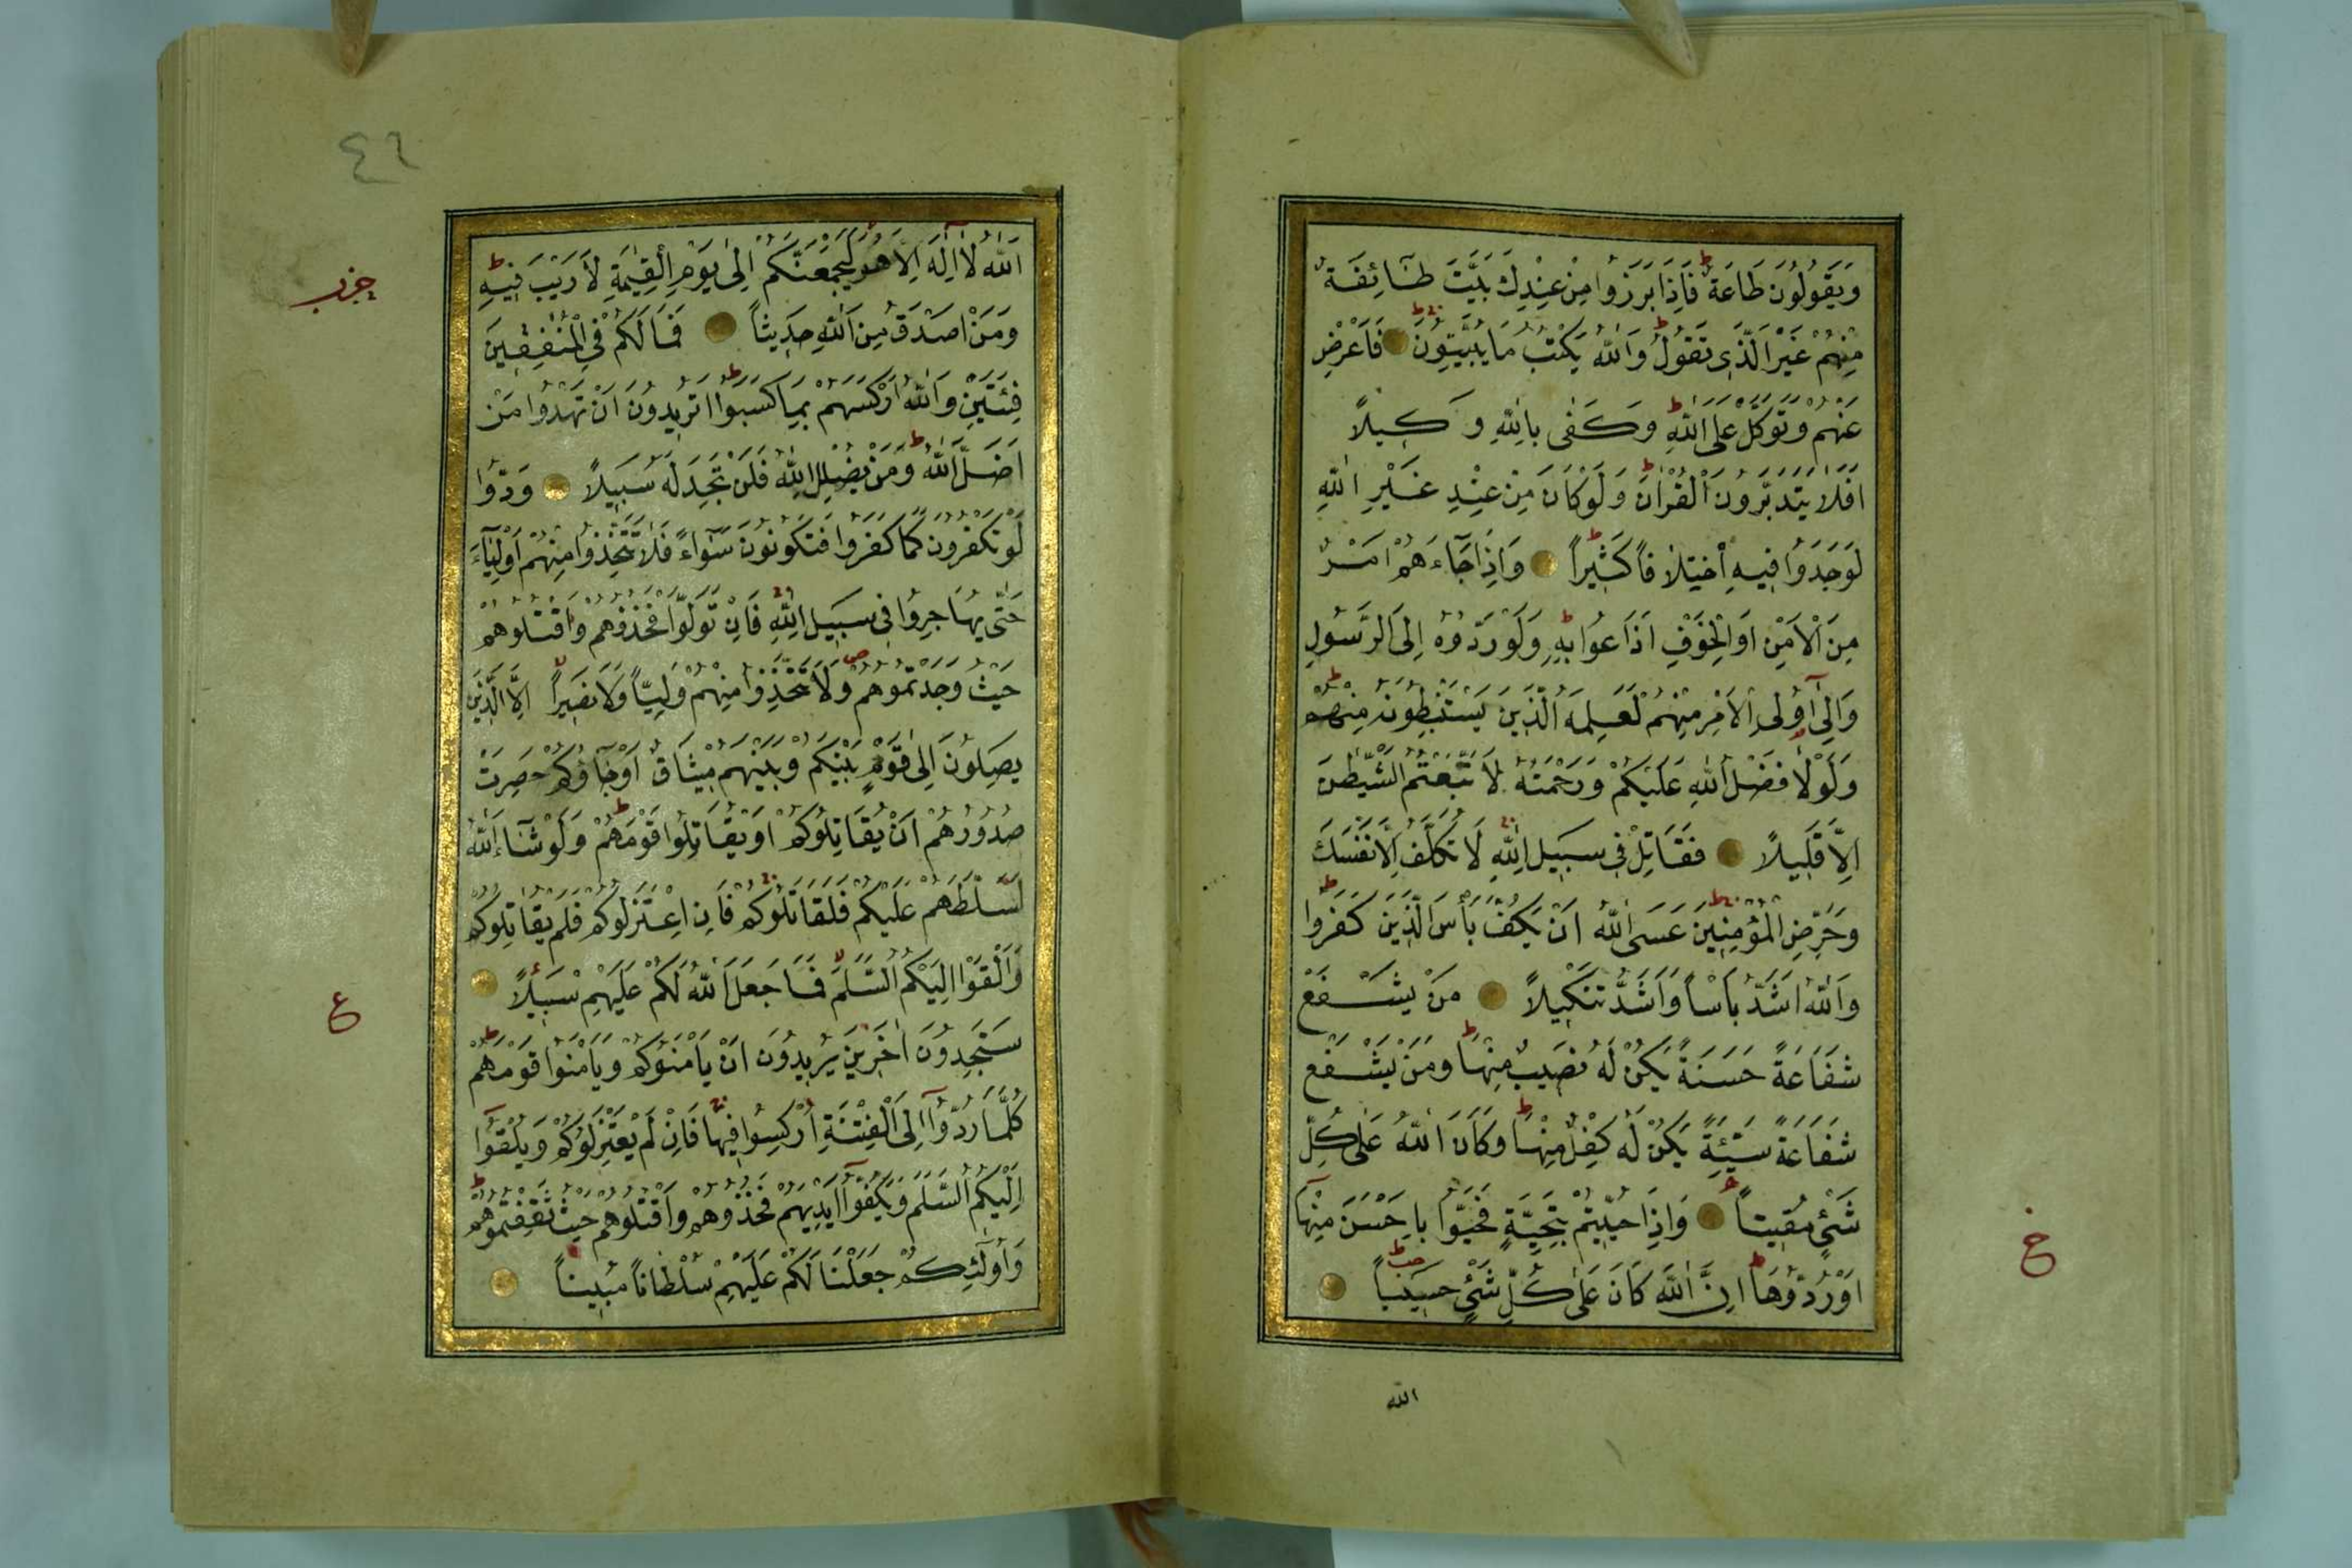 وَيَقُولُونَ طَاعَةٌ فَاِذَا بَرَزُوا مِنْ عِنْدِكَ بَيَّتَ طَآئِفَةٌ
مِنْهُمْ غَيْرَ الَّذِى تَقُولُ وَاللّٰهُ يَكْتُبُ مَا يُبَيِّتُونَ فَاَعْرِضْ
عَنْهُمْ وَتَوَكَّلْ عَلَى اللّٰهِ وَكَفٰى بِاللّٰهِ وَكِيلاً
اَفَلَا يَتَدَبَّرُونَ الْقُرْاٰنَ وَلَوْ كَانَ مِنْ عِنْدِ غَيْرِ اللّٰهِ
لَوَجَدُوا فِيهِ اخْتِلَافاً كَثِيراً وَاِذَا جَآءَهُمْ اَمْرٌ
مِنَ الْاَمْنِ اَوِ الْخَوْفِ اَذَاعُوا بِهِ وَلَوْ رَدُّوهُ اِلَى الرَّسُولِ
وَاِلٰٓى اُولِى الْاَمْرِ مِنْهُمْ لَعَلِمَهُ الَّذِينَ يَسْتَنْبِطُونَهُ مِنْهُمْ
وَلَوْلَا فَضْلُ اللّٰهِ عَلَيْكُمْ وَرَحْمَتُهُ لَاتَّبَعْتُمُ الشَّيْطٰنَ
اِلَّا قَلِيلاً فَقَاتِلْ فِى سَبِيلِ اللّٰهِ لَا تُكَلَّفُ اِلَّا نَفْسَكَ
وَحَرِّضِ الْمُؤْمِنِينَ عَسَى اللّٰهُ اَنْ يَكُفَّ بَأْسَ الَّذِينَ كَفَرُوا
وَاللّٰهُ اَشَدُّ بَاْساً وَاَشَدُّ تَنْكِيلاً مَنْ يَشْفَعْ
شَفَاعَةً حَسَنَةً يَكُنْ لَهُ نَصِيبٌ مِنْهَا وَمَنْ يَشْفَعْ
شَفَاعَةً سَيِّئَةً يَكُنْ لَهُ كِفْلٌ مِنْهَا وَكَانَ اللّٰهُ عَلٰى كُلِّ
شَىْءٍ مُقِيتاً وَاِذَا حُيِّيتُمْ بِتَحِيَّةٍ فَحَيُّوا بِاَحْسَنَ مِنْهَآ
اَوْ رُدُّوهَا اِنَّ اللّٰهَ كَانَ عَلٰى كُلِّ شَىْءٍ حَسِيباً
الله
٤٦
اَللّٰهُ لَا اِلٰهَ اِلَّا هُوَ لَيَجْمَعَنَّكُمْ اِلٰى يَوْمِ الْقِيٰمَةِ لَا رَيْبَ فِيهِ
وَمَنْ اَصْدَقُ مِنَ اللّٰهِ حَدِيثاً فَمَا لَكُمْ فِى الْمُنٰفِقِينَ
فِئَتَيْنِ وَاللّٰهُ اَرْكَسَهُمْ بِمَا كَسَبُوا اَتُرِيدُونَ اَنْ تَهْدُوا مَنْ
اَضَلَّ اللّٰهُ وَمَنْ يُضْلِلِ اللّٰهُ فَلَنْ تَجِدَ لَهُ سَبِيلاً وَدُّوا
لَوْ تَكْفُرُونَ كَمَا كَفَرُوا فَتَكُونُونَ سَوَآءً فَلَا تَتَّخِذُوا مِنْهُمْ اَوْلِيَآءَ
حَتّٰى يُهَاجِرُوا فِى سَبِيلِ اللّٰهِ فَاِنْ تَوَلَّوْا فَخُذُوهُمْ وَاقْتُلُوهُمْ
حَيْثُ وَجَدْتُمُوهُمْ وَلَا تَتَّخِذُوا مِنْهُمْ وَلِيّاً وَلَا نَصِيراً اِلَّا الَّذِينَ
يَصِلُونَ اِلٰى قَوْمٍ بَيْنَكُمْ وَبَيْنَهُمْ مِيثَاقٌ اَوْ جَآؤُكُمْ حَصِرَتْ
صُدُورُهُمْ اَنْ يُقَاتِلُوكُمْ اَوْ يُقَاتِلُوا قَوْمَهُمْ وَلَوْ شَآءَ اللّٰهُ
لَسَلَّطَهُمْ عَلَيْكُمْ فَلَقَاتَلُوكُمْ فَاِنِ اعْتَزَلُوكُمْ فَلَمْ يُقَاتِلُوكُمْ
وَاَلْقَوْا اِلَيْكُمُ السَّلَمَ فَمَا جَعَلَ اللّٰهُ لَكُمْ عَلَيْهِمْ سَبِيلاً
سَتَجِدُونَ اٰخَرِينَ يُرِيدُونَ اَنْ يَاْمَنُوكُمْ وَيَاْمَنُوا قَوْمَهُمْ
كُلَّمَا رُدُّوٓا اِلَى الْفِتْنَةِ اُرْكِسُوا فِيهَا فَاِنْ لَمْ يَعْتَزِلُوكُمْ وَيُلْقُوٓا
اِلَيْكُمُ السَّلَمَ وَيَكُفُّوٓا اَيْدِيَهُمْ فَخُذُوهُمْ وَاقْتُلُوهُمْ حَيْثُ ثَقِفْتُمُوهُمْ
وَاُولٰٓئِكُمْ جَعَلْنَا لَكُمْ عَلَيْهِمْ سُلْطَاناً مُبِيناً
حزب
ع